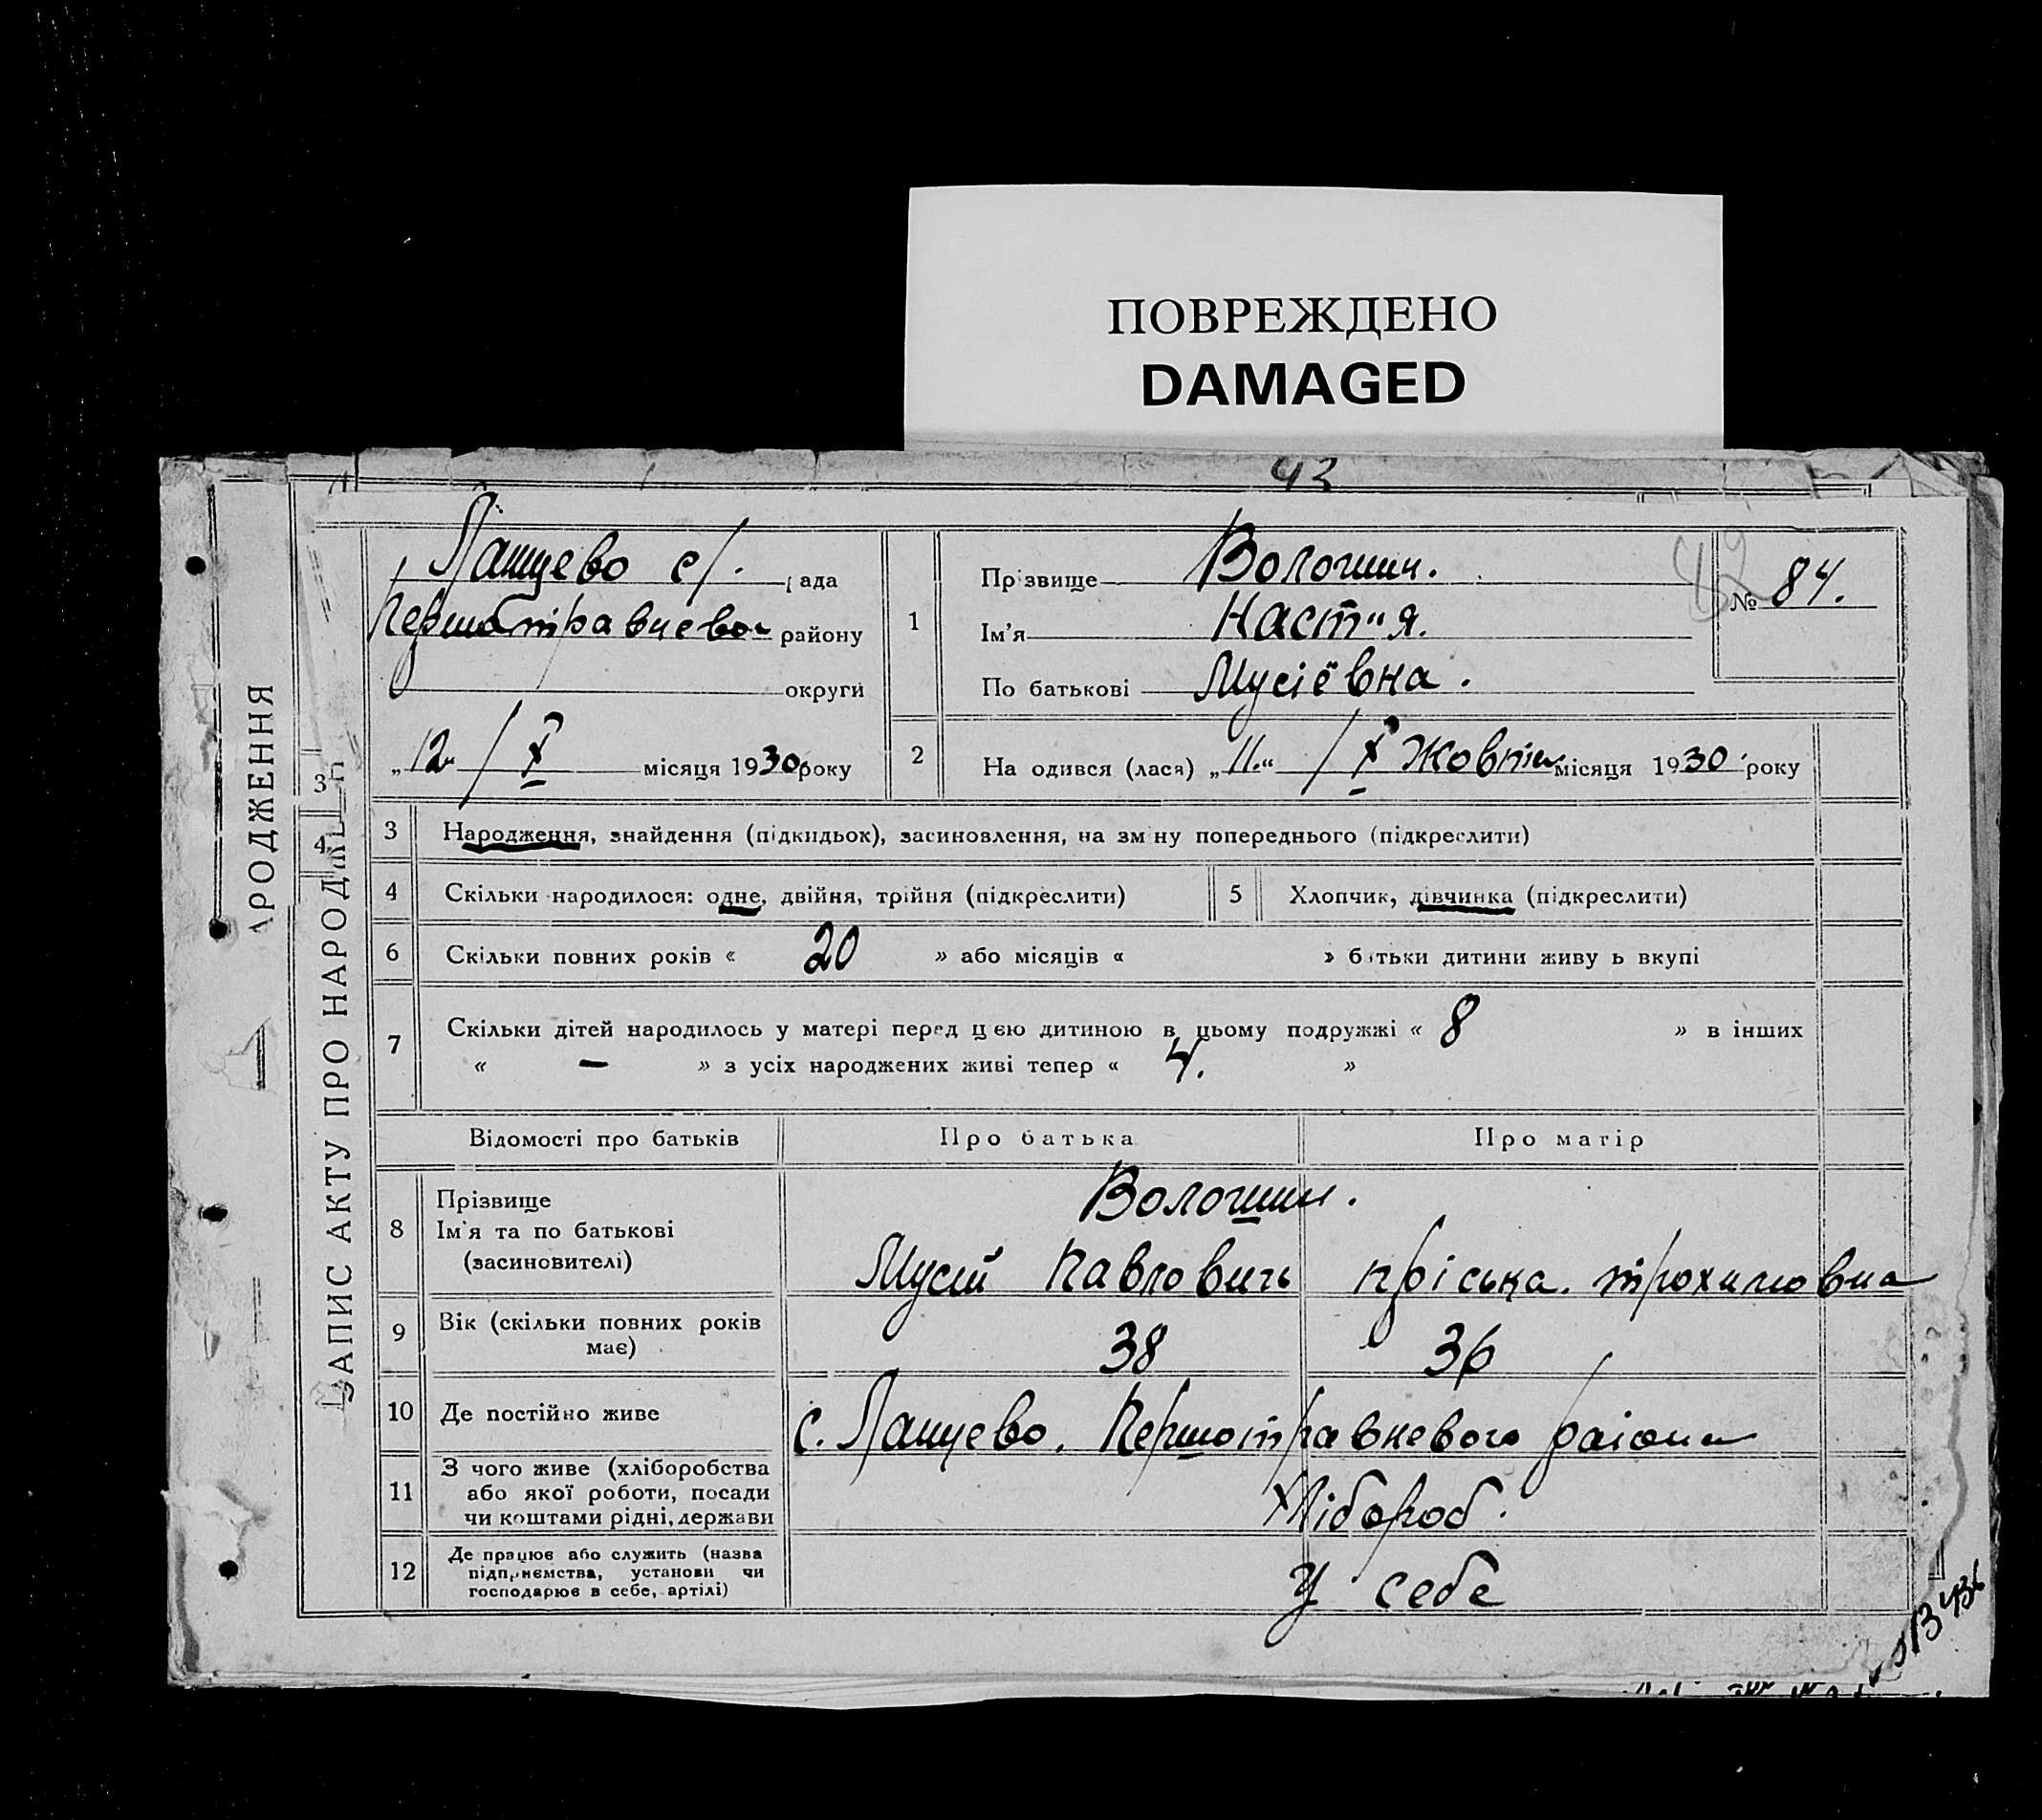 ПОВРЕЖДЕНО
DAMAGED
43
АРОДЖЕННЯ
ЗАПИС АКТУ ПРО НАРОД
3
4
Ланцево с/. рада
Першотравневого району
округи
„12“ / X місяця 1930 року
1
Прізвище Волошин.
Ім'я Наст"я.
По батькові Мусіёвна.
42
№ 84.
2 На одився (лася) „11.“ / X Жовтня місяця 1930 року
3 Народження, знайдення (підкидьох), засиновлення, на зміну попереднього (підкреслити)
4 Скільки народилося: одне, двійня, трійня (підкреслити) 5 Хлопчик, дівчинка (підкреслити)
6 Скільки повних років « 20 » або місяців « » батьки дитини живу ь вкупі
7 Скільки дітей народилось у матері перед цією дитиною в цьому подружжі « 8 » в інших
« — » з усіх народжених живі тепер « 4. »
Відомості про батьків Про батька Про матір
8 Прізвище
Ім'я та по батькові
(засиновителі)
Волошин.
Мусій Павлович Пріська. Трохимовна
9 Вік (скільки повних років
має)
38 36
10 Де постійно живе с. Ланцево. Першотравневого району
11 З чого живе (хліборобства
або якої роботи, посади
чи коштами рідні, держави
Хлібороб.
12 Де працює або служить (назва
підприємства, установи чи
господарює в себе, артілі)
У себе